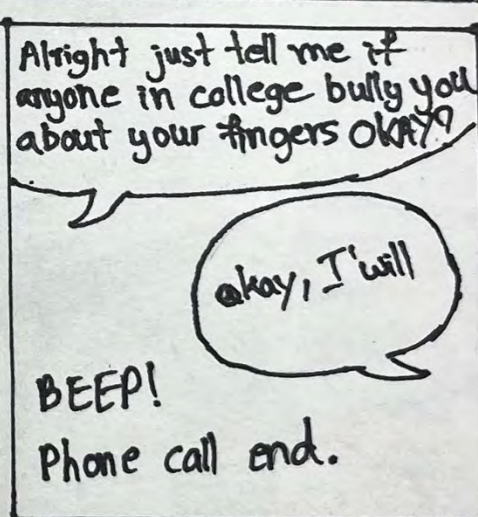 Alright just tell me if
anyone in college bully you
about your fingers OKAY?
okay, I'will
BEEP!
Phone call end.